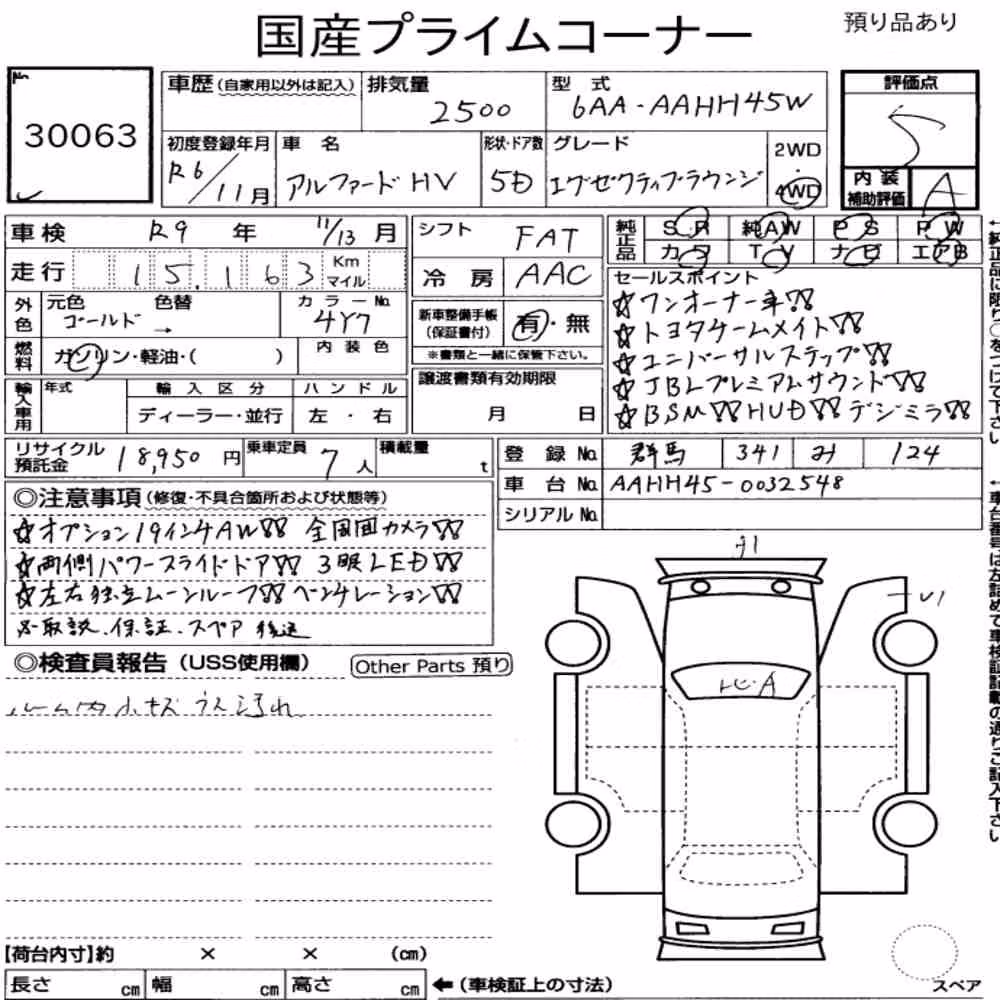 国産プライムコーナー
預り品あり
No
30063
車歴(自家用以外は記入)
排気量
2500
型式
6AA-AAHH45W
評価点
5
初度登録年月
R6/11月
車名
アルファードHV
形状・ドア数
5D
グレード
エグゼクティブラウンジ
2WD
・
4WD
内装
補助評価
A
車検 R9年 11/13月
シフト FAT
純正品
SR 純AW PS PW
カワ TV ナビ エアB
走行 15.163 Km マイル
冷房 AAC
セールスポイント
☆ワンオーナー車!!
☆トヨタチームメイト!!
☆ユニバーサルステップ!!
☆JBLプレミアムサウンド!!
☆BSM!!HUD!!デジミラ!!
外色
元色
ゴールド
色替
→
カラーNo.
4Y7
新車整備手帳
(保証書付)
有・無
※書類と一緒に保管下さい。
燃料
ガソリン・軽油・( )
内装色
譲渡書類有効期限
月 日
輸入車用
年式
輸入区分
ディーラー・並行
ハンドル
左・右
リサイクル
預託金
18,950円
乗車定員
7人
積載量
t
登録No. 群馬 341 み 124
車台No. AAHH45-0032548
シリアルNo.
◎注意事項(修復・不具合箇所および状態等)
☆オプション19インチAW!! 全周囲カメラ!!
☆両側パワースライドドア!! 3眼LED!!
☆左右独立ムーンルーフ!!ベンチレーション!!
※取説、保証、スペア 後送
◎検査員報告(USS使用欄)
Other Parts 預り
ルーム内小キズ うス汚れ
A1
U1
ヒ・A
【荷台内寸】約 × × (cm)
長さ cm 幅 cm 高さ cm
←(車検証上の寸法)
スペア
←純正品に限り○をつけて下さい
←車台番号は左詰めで車検証記載の通りご記入下さい